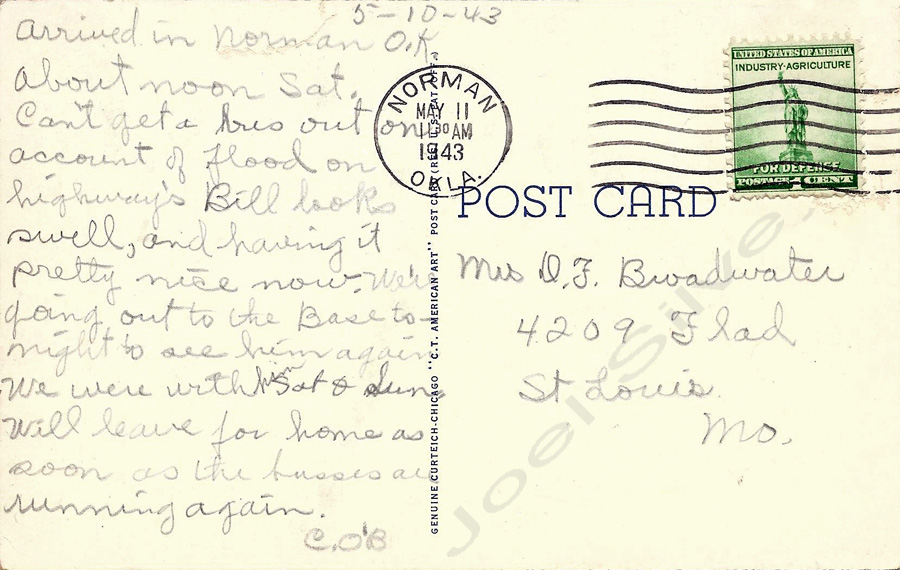 5-10-43
Arrived in Norman O.K.
About noon Sat.
Can't get a bus out on
account of flood on
highway's Bill looks
swell, and having it
pretty nice now. We're
going out to the Base to-
night to see him again
We were with him Sat & Sun.
Will leave for home as
soon as the busses are
running again.
C.O'B
GENUINE CURTEICH-CHICAGO "C.T. AMERICAN ART" POST CARD (REG. U.S. PAT. OFF.)
NORMAN
MAY 11
11 30 AM
1943
OKLA.
UNITED STATES OF AMERICA
INDUSTRY-AGRICULTURE
FOR DEFENSE
POSTAGE 1 CENT
POST CARD
Mrs D.F. Broadwater
4209 Flad
St Louis
Mo.
Joel Silver